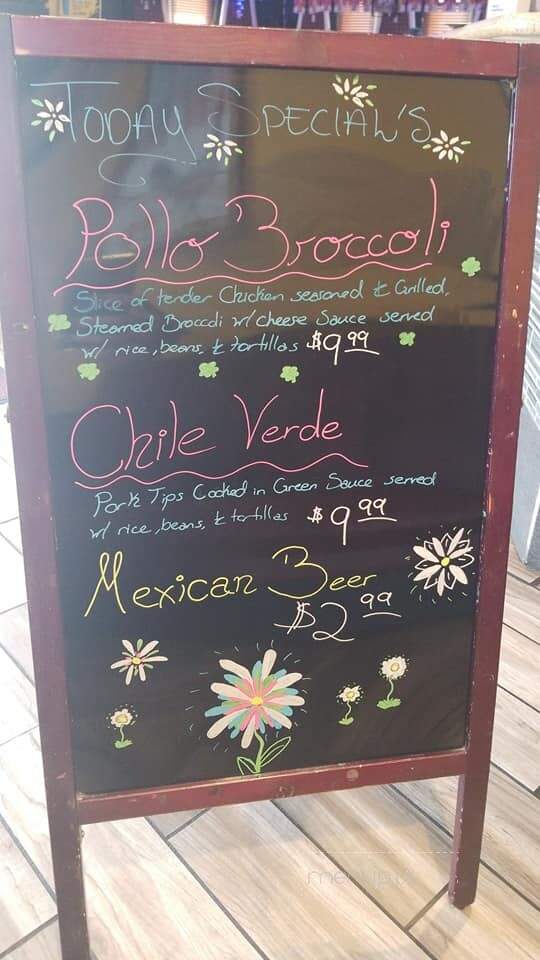 Today Special's
Pollo Broccoli
Slice of tender Chicken seasoned & Grilled,
Steamed Broccoli w/ cheese Sauce served
w/ rice, beans, & tortillas $9.99
Chile Verde
Pork Tips Cooked in Green Sauce served
w/ rice, beans, & tortillas $9.99
Mexican Beer
$2.99